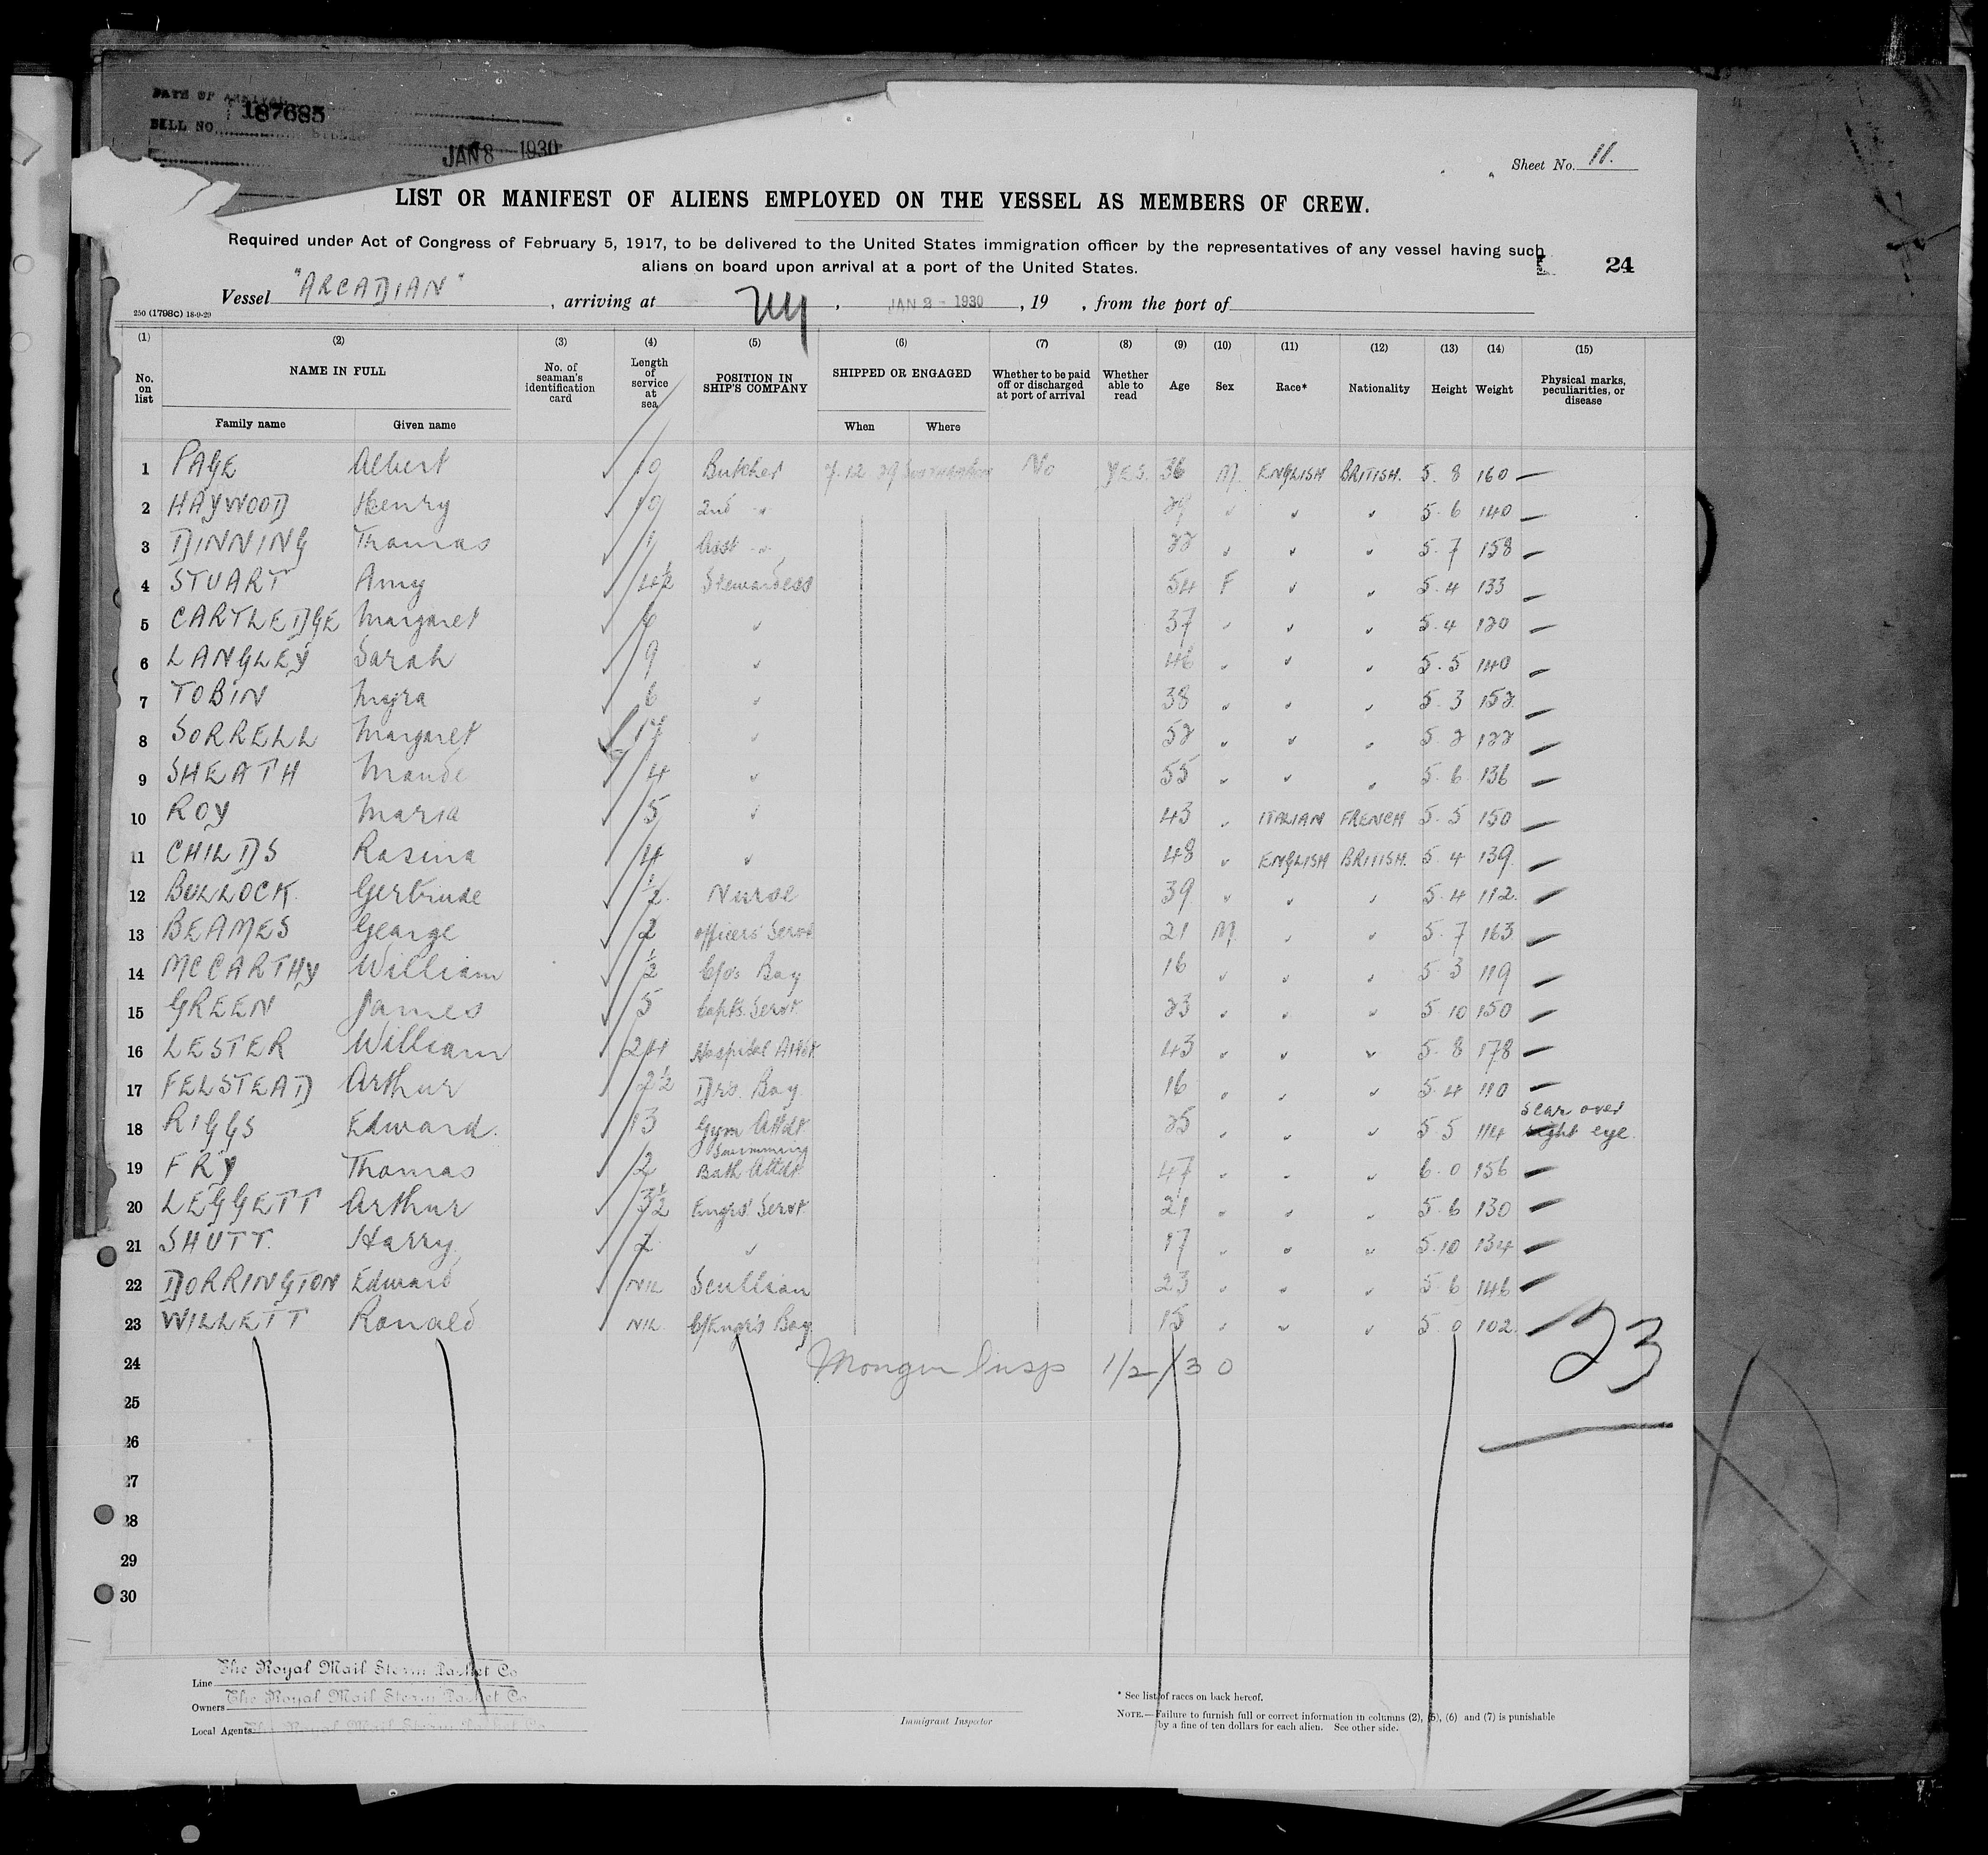 DATE OF ARRIVAL
187685
BILL NO.
JAN 8 1930
Sheet No. 11.
LIST OR MANIFEST OF ALIENS EMPLOYED ON THE VESSEL AS MEMBERS OF CREW.
Required under Act of Congress of February 5, 1917, to be delivered to the United States immigration officer by the representatives of any vessel having such
aliens on board upon arrival at a port of the United States.
24
Vessel "ARCADIAN", arriving at NY, JAN 2 - 1930, 19 , from the port of
250 (1798C) 18-9-29
(1) (2) (3) (4) (5) (6) (7) (8) (9) (10) (11) (12) (13) (14) (15)
No. on list NAME IN FULL No. of seaman's identification card Length of service at sea POSITION IN SHIP'S COMPANY SHIPPED OR ENGAGED Whether to be paid off or discharged at port of arrival Whether able to read Age Sex Race* Nationality Height Weight Physical marks, peculiarities, or disease
Family name Given name When Where
1 PAGE Albert 10 Butcher 7.12 29 Southampton No YES. 36 M. ENGLISH BRITISH. 5. 8 160 —
2 HAYWOOD Henry 10 2nd " 29 " " " 5. 6 140 —
3 DINNING Thomas 1 Asst " 22 " " " 5. 7 158 —
4 STUART Amy Stewardess 54 F " " 5. 4 133 —
5 CARTLEDGE Margaret 6 " 37 " " " 5. 4 120 —
6 LANGLEY Sarah 9 " 46 " " " 5. 5 140 —
7 TOBIN Myra 6 " 38 " " " 5. 3 152. —
8 SORRELL Margaret 17 " 52 " " " 5 2 122 —
9 SHEATH Maude 4 " 55 " " " 5. 6. 136 —
10 ROY Maria 5 " 43 " ITALIAN FRENCH 5. 5 150 —
11 CHILDS Rosina 4 " 48 " ENGLISH BRITISH. 5. 4 139. —
12 BULLOCK. Gertrude 1/2 Nurse 39 " " " 5. 4 112. —
13 BEAMES George 2 Officers' Servt 21 M. " " 5. 7 163 —
14 MCCARTHY William 1/2 C/O's Boy 16 " " " 5. 3 119 —
15 GREEN James 5 Capt's. Servt. 23 " " " 5. 10 150 —
16 LESTER William 24 Hospital Attdt. 43 " " " 5. 8 178 —
17 FELSTEAD Arthur 2 1/2 Dr's. Boy 16 " " " 5. 4 110 —
18 RIGGS Edward. 13 Gym Attdt 25 " " " 5. 5 114 Scar over right eye.
19 FRY Thomas 2 Swimming Bath Attdt 47 " " " 6. 0 156 —
20 LEGGETT Arthur 3 1/2 Engrs' Servt 21 " " " 5. 6 130 —
21 SHUTT. Harry 2 " 17 " " " 5. 10 134 —
22 DORRINGTON Edward NIL Scullion 23 " " " 5. 6 146 —
23 WILLETT Ronald NIL. C/Engr's Boy 15 " " " 5. 0 102. —
23
24 Insp 1/2/30
25
26
27
28
29
30
Line The Royal Mail Steam Packet Co
Owners The Royal Mail Steam Packet Co
Local Agents The Royal Mail Steam Packet Co
Immigrant Inspector
* See list of races on back hereof.
NOTE.—Failure to furnish full or correct information in columns (2), (5), (6) and (7) is punishable
by a fine of ten dollars for each alien. See other side.